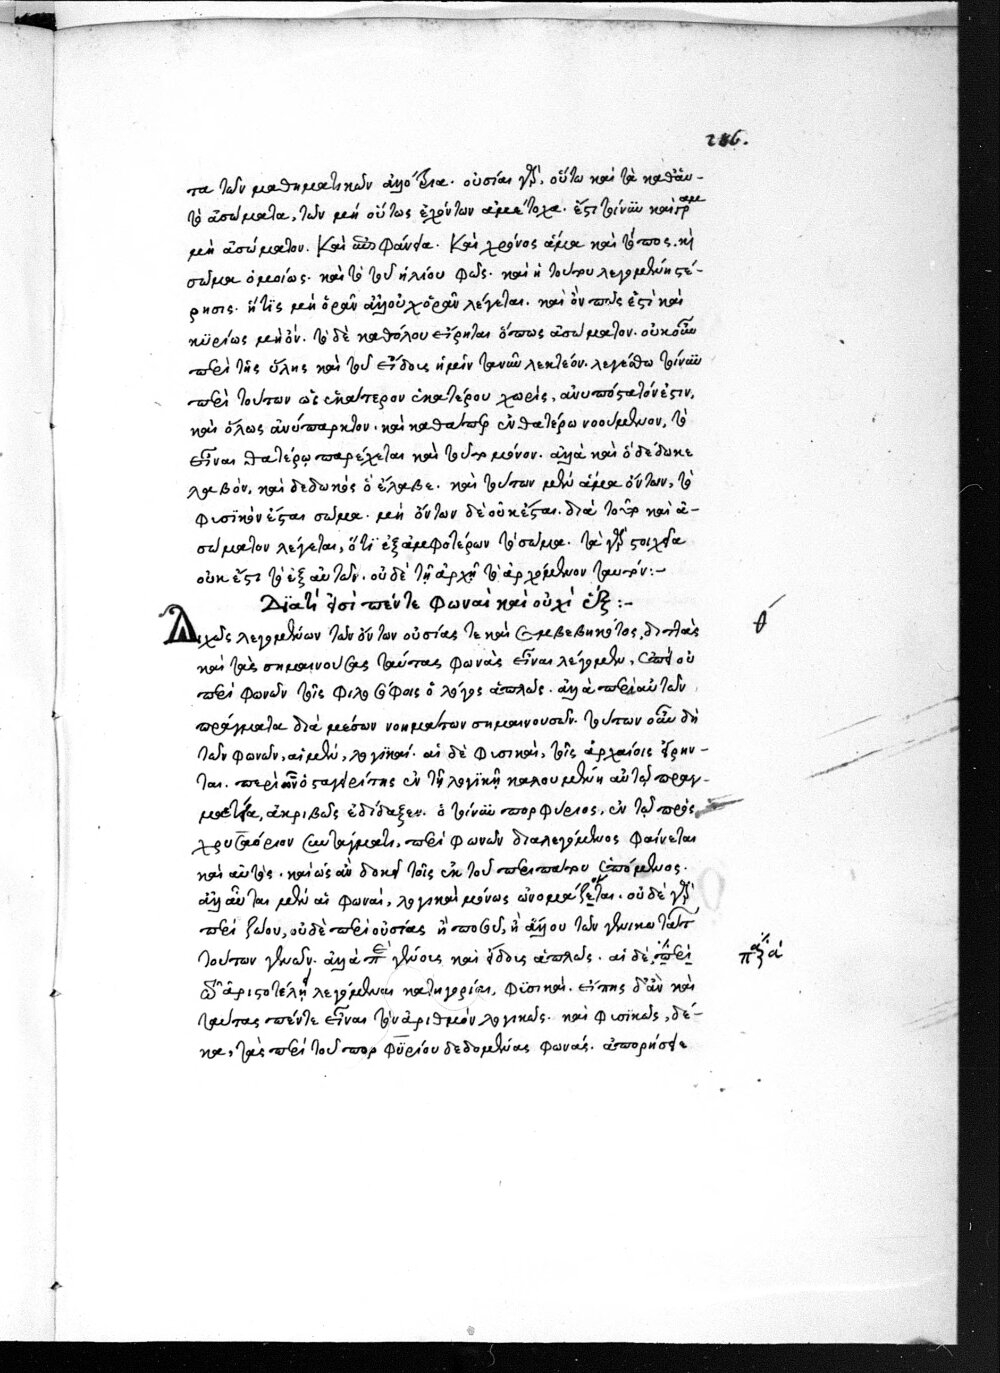 216.
τα τῶν μαθηματικῶν ἀλλότρια. οὐσίαι γὰρ. οὕτω καὶ τὰ καθ' αὑ-
τὰ ἀσώματα, τῶν μὴ οὕτως ἐχόντων ἀμέτοχα. ἔστι τοίνυν καὶ γραμ
μὴ ἀσώματον. καὶ ἐπιφάνεια. καὶ χρόνος ἅμα καὶ τόπος. καὶ
σῶμα ὁμοίως. καὶ τὸ τοῦ ἡλίου φῶς. καὶ ἡ τούτου λεγομένη στέ-
ρησις. ἥτις μὴ ὁρᾶν ἀλλ' οὐχ ὁρᾶν λέγεται. καὶ ὄν πως ἐστὶ καὶ
κυρίως μὴ ὄν. τὸ δὲ καθόλου εἴρηται ὅπως ἀσώματον. οὐκοῦν
περὶ τῆς ὕλης καὶ τοῦ εἴδους ἡμῖν τανῦν λεκτέον. λεγέσθω τοίνυν
περὶ τούτων ὡς ἑκάτερον ἑκατέρου χωρὶς, ἀνυπόστατόν ἐστιν,
καὶ ὅλως ἀνύπαρκτον. καὶ καθάπερ ἐν θατέρῳ νοούμενον, τὸ
εἶναι θατέρῳ παρέχεται καὶ τοῦτο μόνον. ἀλλὰ καὶ ὃ δέδωκε
λαβὸν, καὶ δεδωκὸς ὃ ἔλαβε. καὶ τούτων μὲν ἅμα ὄντων, τὸ
φυσικὸν ἔσται σῶμα. μὴ ὄντων δὲ οὐκ ἔσται. διὰ τοῦτο καὶ ἀ-
σώματον λέγεται, ὅτι ἐξ ἀμφοτέρων τὸ σῶμα. τὰ γὰρ στοιχεῖα
οὐκ ἔστι τὸ ἐξ αὐτῶν. οὐδὲ τῇ ἀρχῇ τὸ ἀρχόμενον ταυτόν:-
Διατί εἰσι πέντε φωναὶ καὶ οὐχὶ ἕξ:-
Διχῶς λεγομένων τῶν ὄντων οὐσίας τε καὶ συμβεβηκότος, διττὰς
καὶ τὰς σημαινούσας ταύτας φωνὰς εἶναι λέγομεν, ἐπεὶ οὐ
περὶ φωνῶν τοῖς φιλοσόφοις ὁ λόγος ἁπλῶς. ἀλλὰ περὶ αὐτῶν
πράγματα διὰ μέσων νοημάτων σημαινουσῶν. τούτων οὖν δὴ
τῶν φωνῶν, αἱ μὲν, λογικαί. αἱ δὲ φυσικαὶ, τοῖς ἀρχαίοις εἴρην-
ται. περὶ ὧν ὁ σταγειρίτης ἐν τῇ λογικῇ καλουμένῃ αὐτῷ πραγ-
ματείᾳ, ἀκριβῶς ἐδίδαξεν. ὁ τοίνυν πορφύριος, ἐν τῷ πρὸς
χρυσαόριον συντάγματι, περὶ φωνῶν διαλεγόμενος φαίνεται
καὶ αὐτός. καὶ ὡς ἂν δοκῇ τοῖς ἐκ τοῦ περιπάτου ἑπόμενος.
ἀλλ' αὗται μὲν αἱ φωναὶ, λογικαὶ μόνως ὀνομάζονται. οὐδὲ γὰρ
περὶ ζώου, οὐδὲ περὶ οὐσίας ἢ ποσοῦ, ἢ ἄλλου τῶν γενικωτάτων
τούτων γενῶν. ἀλλὰ περὶ γένους καὶ εἴδους ἁπλῶς. αἱ δὲ περὶ
ὧν ἀριστοτέλη λεγόμεναι κατηγορίαι, φυσικαί. εἴπῃς δ' ἂν καὶ
ταύτας πέντε εἶναι τὸν ἀριθμὸν λογικῶς. καὶ φυσικῶς, δέ-
κα, τὰς περὶ τοῦ πορφυρίου δεδομένας φωνάς. ἀπορήσειε